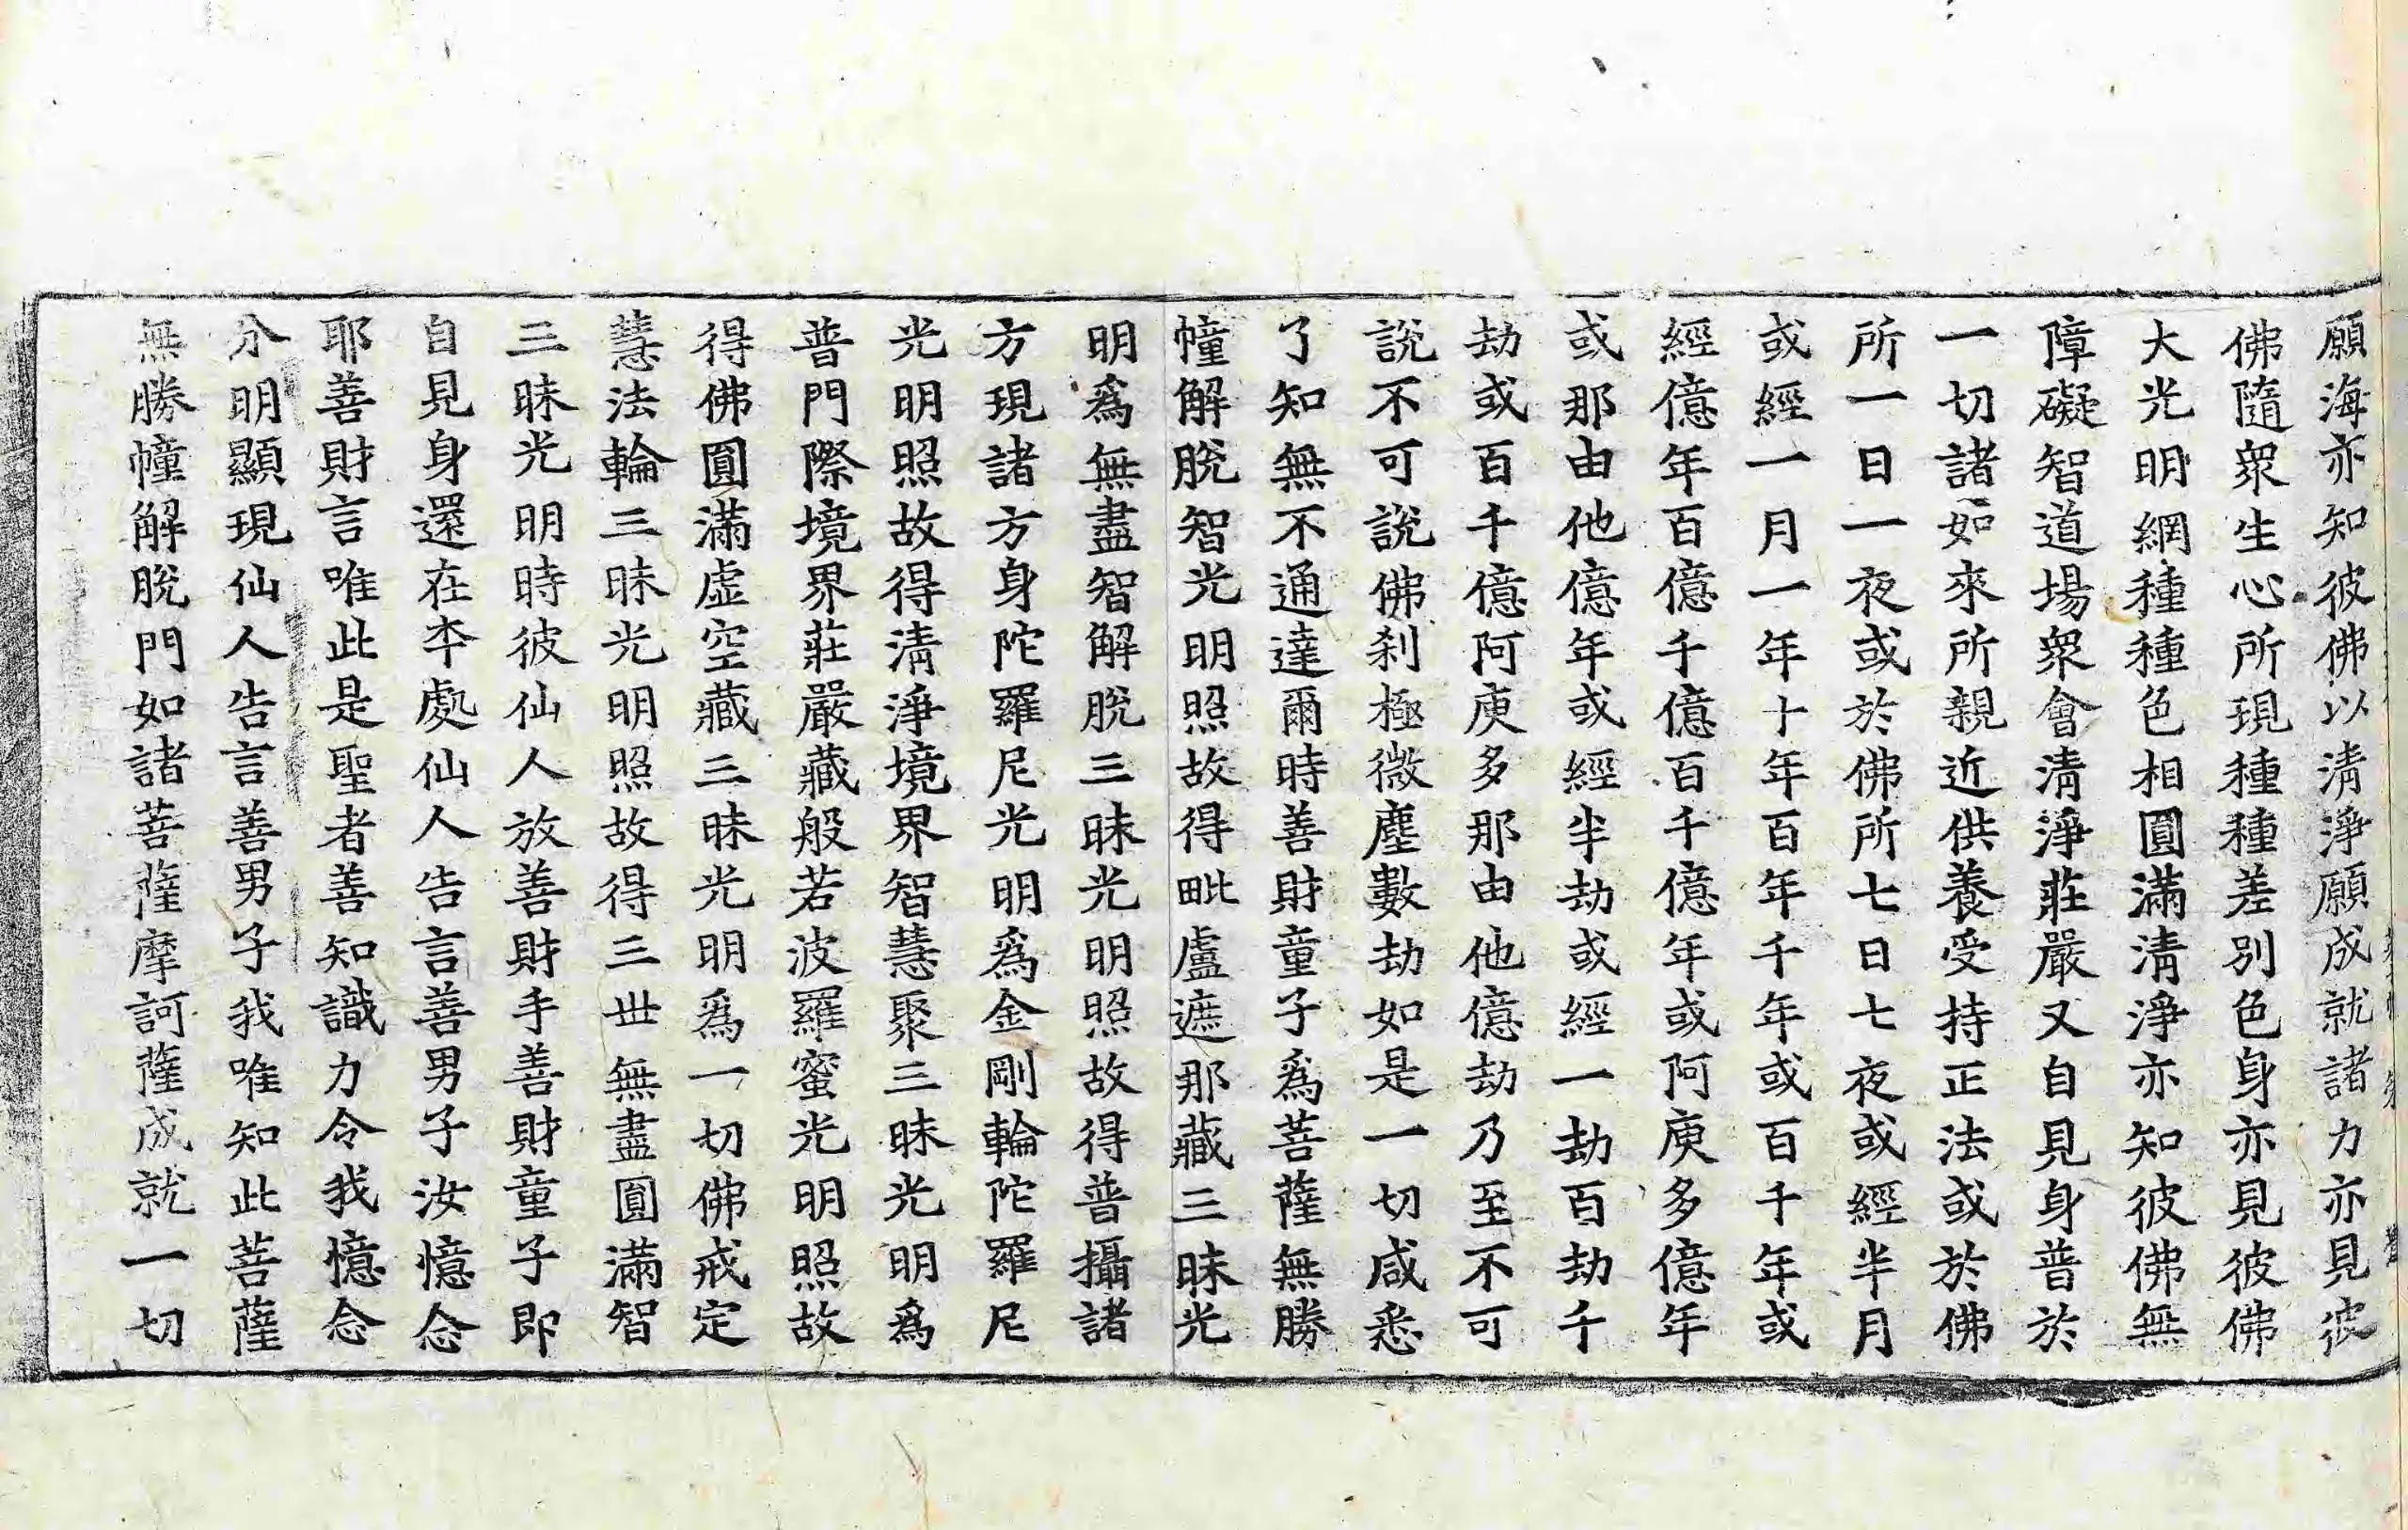 願海亦知彼佛以清淨願成就諸力亦見彼
佛隨衆生心所現種種差別色身亦見彼佛
大光明網種種色相圓滿清淨亦知彼佛無
障礙智道場衆會清淨莊嚴又自見身普於
一切諸如來所親近供養受持正法或於佛
所一日一夜或於佛所七日七夜或經半月
或經一月一年十年百年千年或百千年或
經億年百億千億百千億年或阿庾多億年
或那由他億年或經半劫或經一劫百劫千
劫或百千億阿庾多那由他億劫乃至不可
說不可說佛刹極微塵數劫如是一切咸悉
了知無不通達爾時善財童子爲菩薩無勝
幢解脫智光明照故得毗盧遮那藏三昧光
明爲無盡智解脫三昧光明照故得普攝諸
方現諸方身陀羅尼光明爲金剛輪陀羅尼
光明照故得清淨境界智慧聚三昧光明爲
普門際境界莊嚴藏般若波羅蜜光明照故
得佛圓滿虛空藏三昧光明爲一切佛戒定
慧法輪三昧光明照故得三世無盡圓滿智
三昧光明時彼仙人放善財手善財童子即
自見身還在夲處仙人告言善男子汝憶念
耶善財言唯此是聖者善知識力令我憶念
分明顯現仙人告言善男子我唯知此菩薩
無勝幢解脫門如諸菩薩摩訶薩成就一切